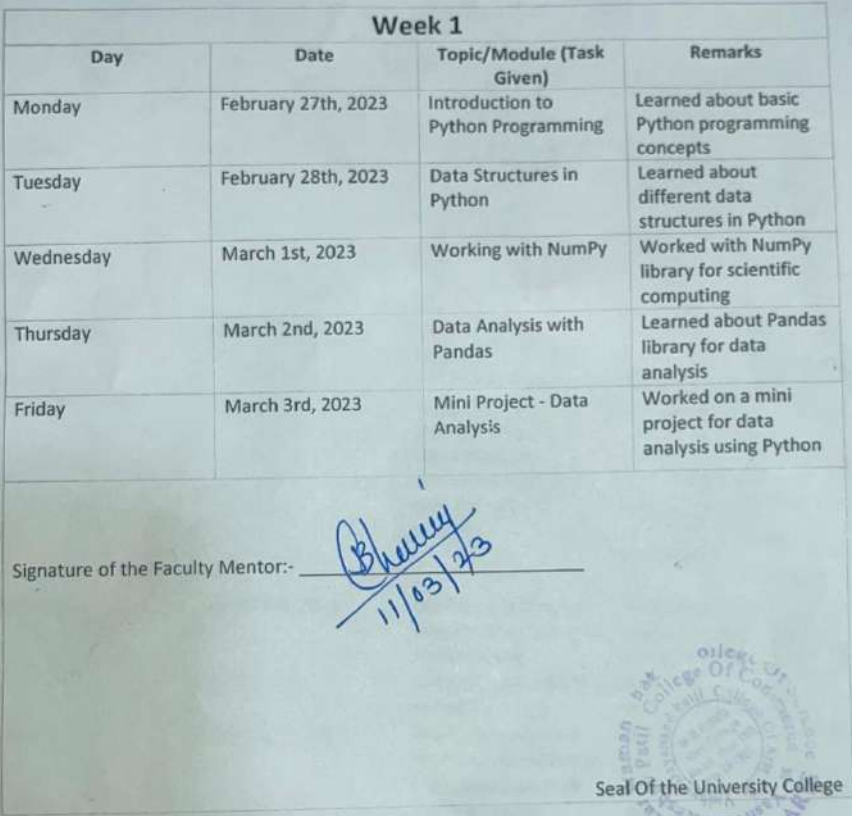 Week 1
Day Date Topic/Module (Task Given) Remarks
Monday February 27th, 2023 Introduction to Python Programming Learned about basic Python programming concepts
Tuesday February 28th, 2023 Data Structures in Python Learned about different data structures in Python
Wednesday March 1st, 2023 Working with NumPy Worked with NumPy library for scientific computing
Thursday March 2nd, 2023 Data Analysis with Pandas Learned about Pandas library for data analysis
Friday March 3rd, 2023 Mini Project - Data Analysis Worked on a mini project for data analysis using Python
Signature of the Faculty Mentor:-
11/03/23
Patil College Of
Seal Of the University College